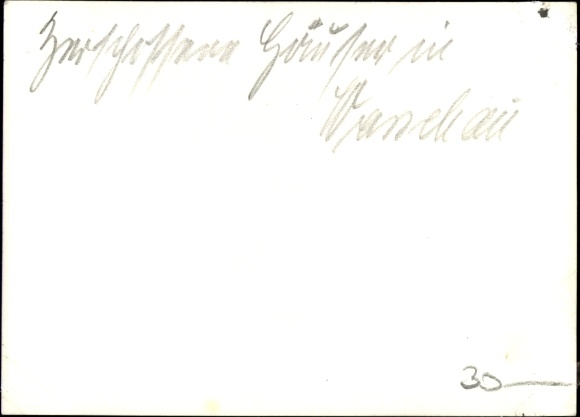 Zerschossene Häuser in
Warschau
30